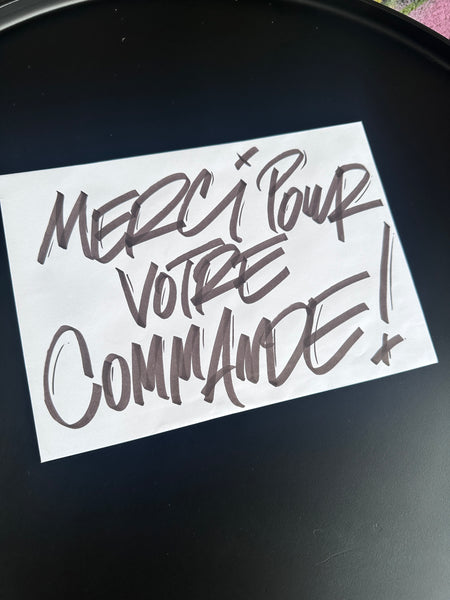 MERCi POUR
VOTRE
COMMANDE !